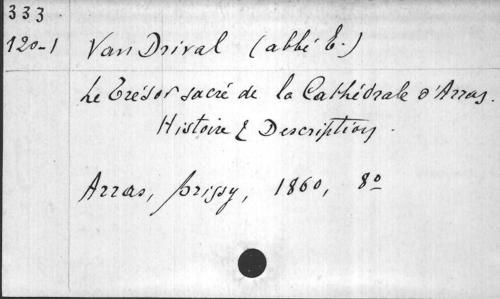 333
120-1 Van Drival (abbé E.)
Le Trésor sacré de la Cathédrale d'Arras.
Histoire & Description.
Arras, Brissy, 1860, 8o